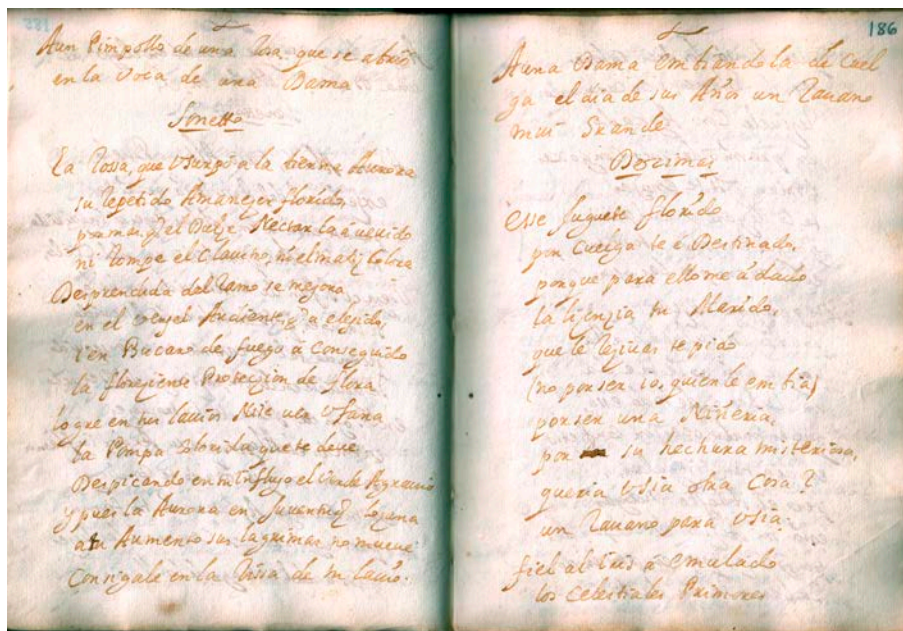 Aun Pimpollo de una Rosa, que se abrio
en la Voca de una Dama
Sonetto
La Rossa, que Vsurpó a la tierna Aurora
su repetido Amanezer florido,
por mas, q̃ el Dulze Nectar la
ni rompe el Clautro, ni el matiz colora
Desprendida del Ramo se mejora
en el Ardiente, q̃ a elejido,
i en Bucaro de fuego á Conseguido
la floreziente Proteczion de flora
logre en tus lavios Nise Vfana
la Pompa florida que te deve
Despicando en tu Influjo el Agravio
y pues la Aurora en Juventud Lozana
a su Aumento sus lagrimas no mueve
Consigale en la Rissa de tu lavio.
186
A una Dama embiandola de Cuel
ga el dia de sus Años un Ravano
mui Grande
Dezimas
Esse Juguete florido
por Cuelga te é Destinado,
porque para ello me á dado
la lizenzia tu Marido,
que le rezivas te pido
(no por ser io, quien le embia)
por ser una Niñeria,
por su hechura misteriosa,
queria Vsia otra Cosa?
un Ravano para Vsia
fiel al á emulado
los Celestiales Primores